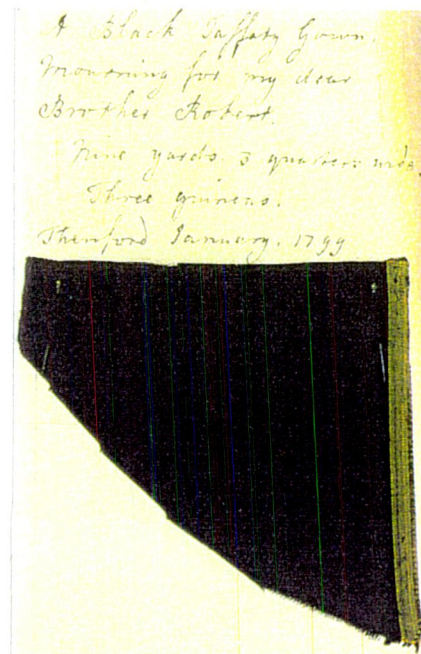 A Black Taffety Gown.
Mourning for my dear
Brother Robert.
Nine yards. 3 quarters wide.
Three guineas.
Thenford January. 1799